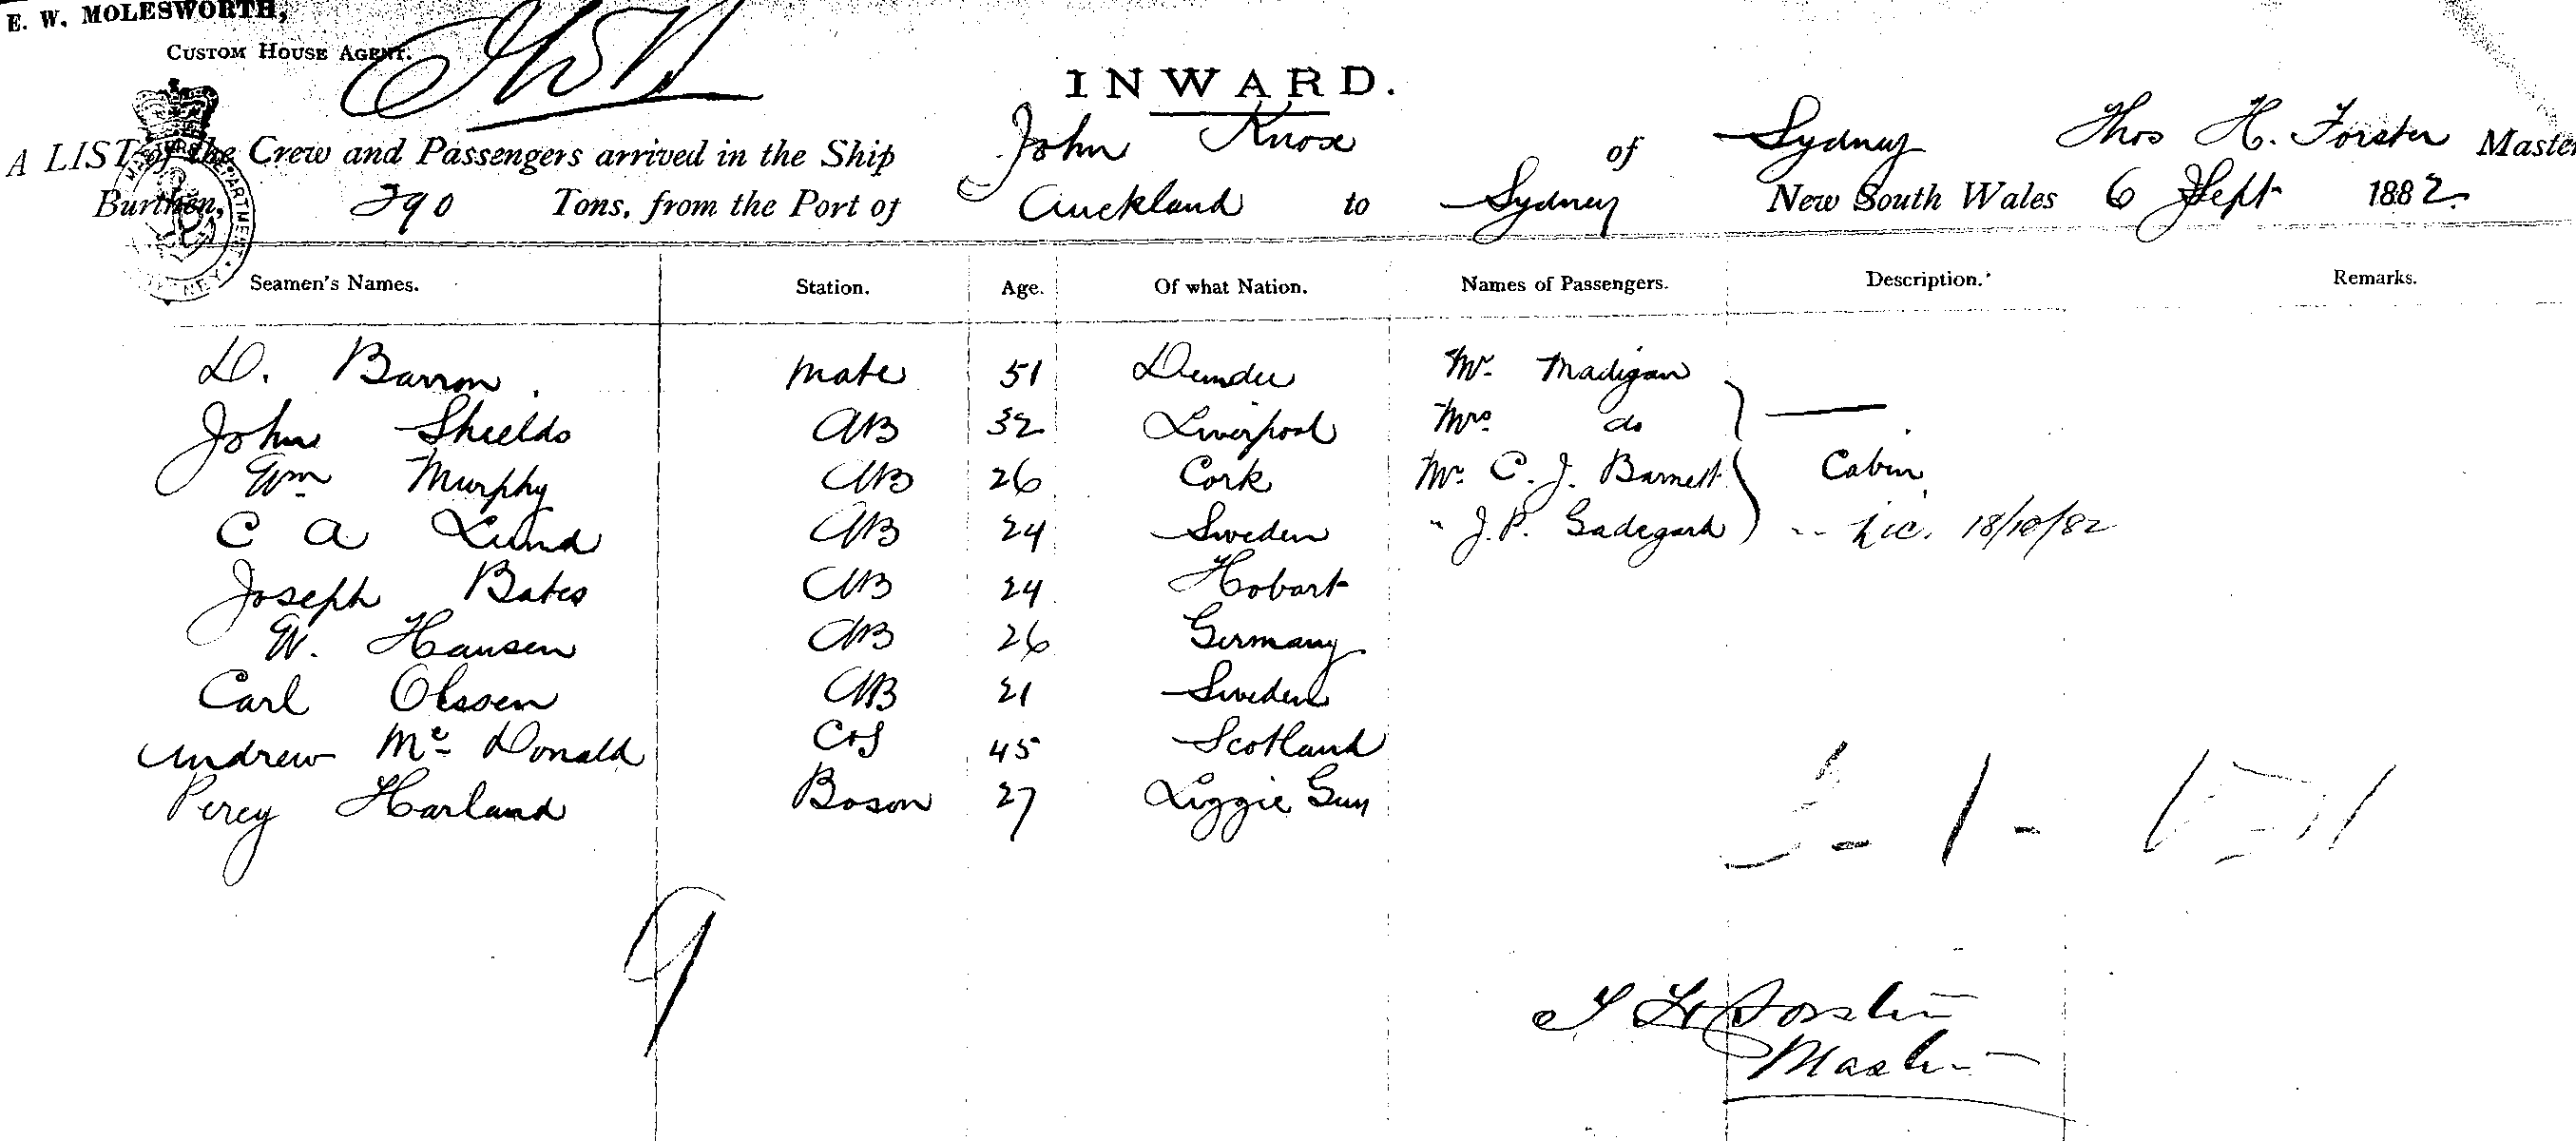 E. W. MOLESWORTH,
CUSTOM HOUSE AGENT.
INWARD.
A LIST of the Crew and Passengers arrived in the Ship John Knox of Sydney Thos H. Forster Master
Burthen, 290 Tons, from the Port of Auckland to Sydney New South Wales 6 Sept 1882
Seamen's Names. Station. Age. Of what Nation. Names of Passengers. Description. Remarks.
D. Barron Mate 51 Dundee Mr. Madigan
John Shields AB 32 Liverpool Mrs do
Wm Murphy AB 26 Cork Mr. C. J. Barnett Cabin
C A Lund AB 24 Sweden " J. P. Gadegard Lic. 18/10/82
Joseph Bates AB 24 Hobart
W. Hansen AB 26 Germany
Carl Olssen AB 21 Sweden
Andrew Mc Donald C&S 45 Scotland
Percy Harland Boson 27 Lizzie Guy
9
T H Forster
Master